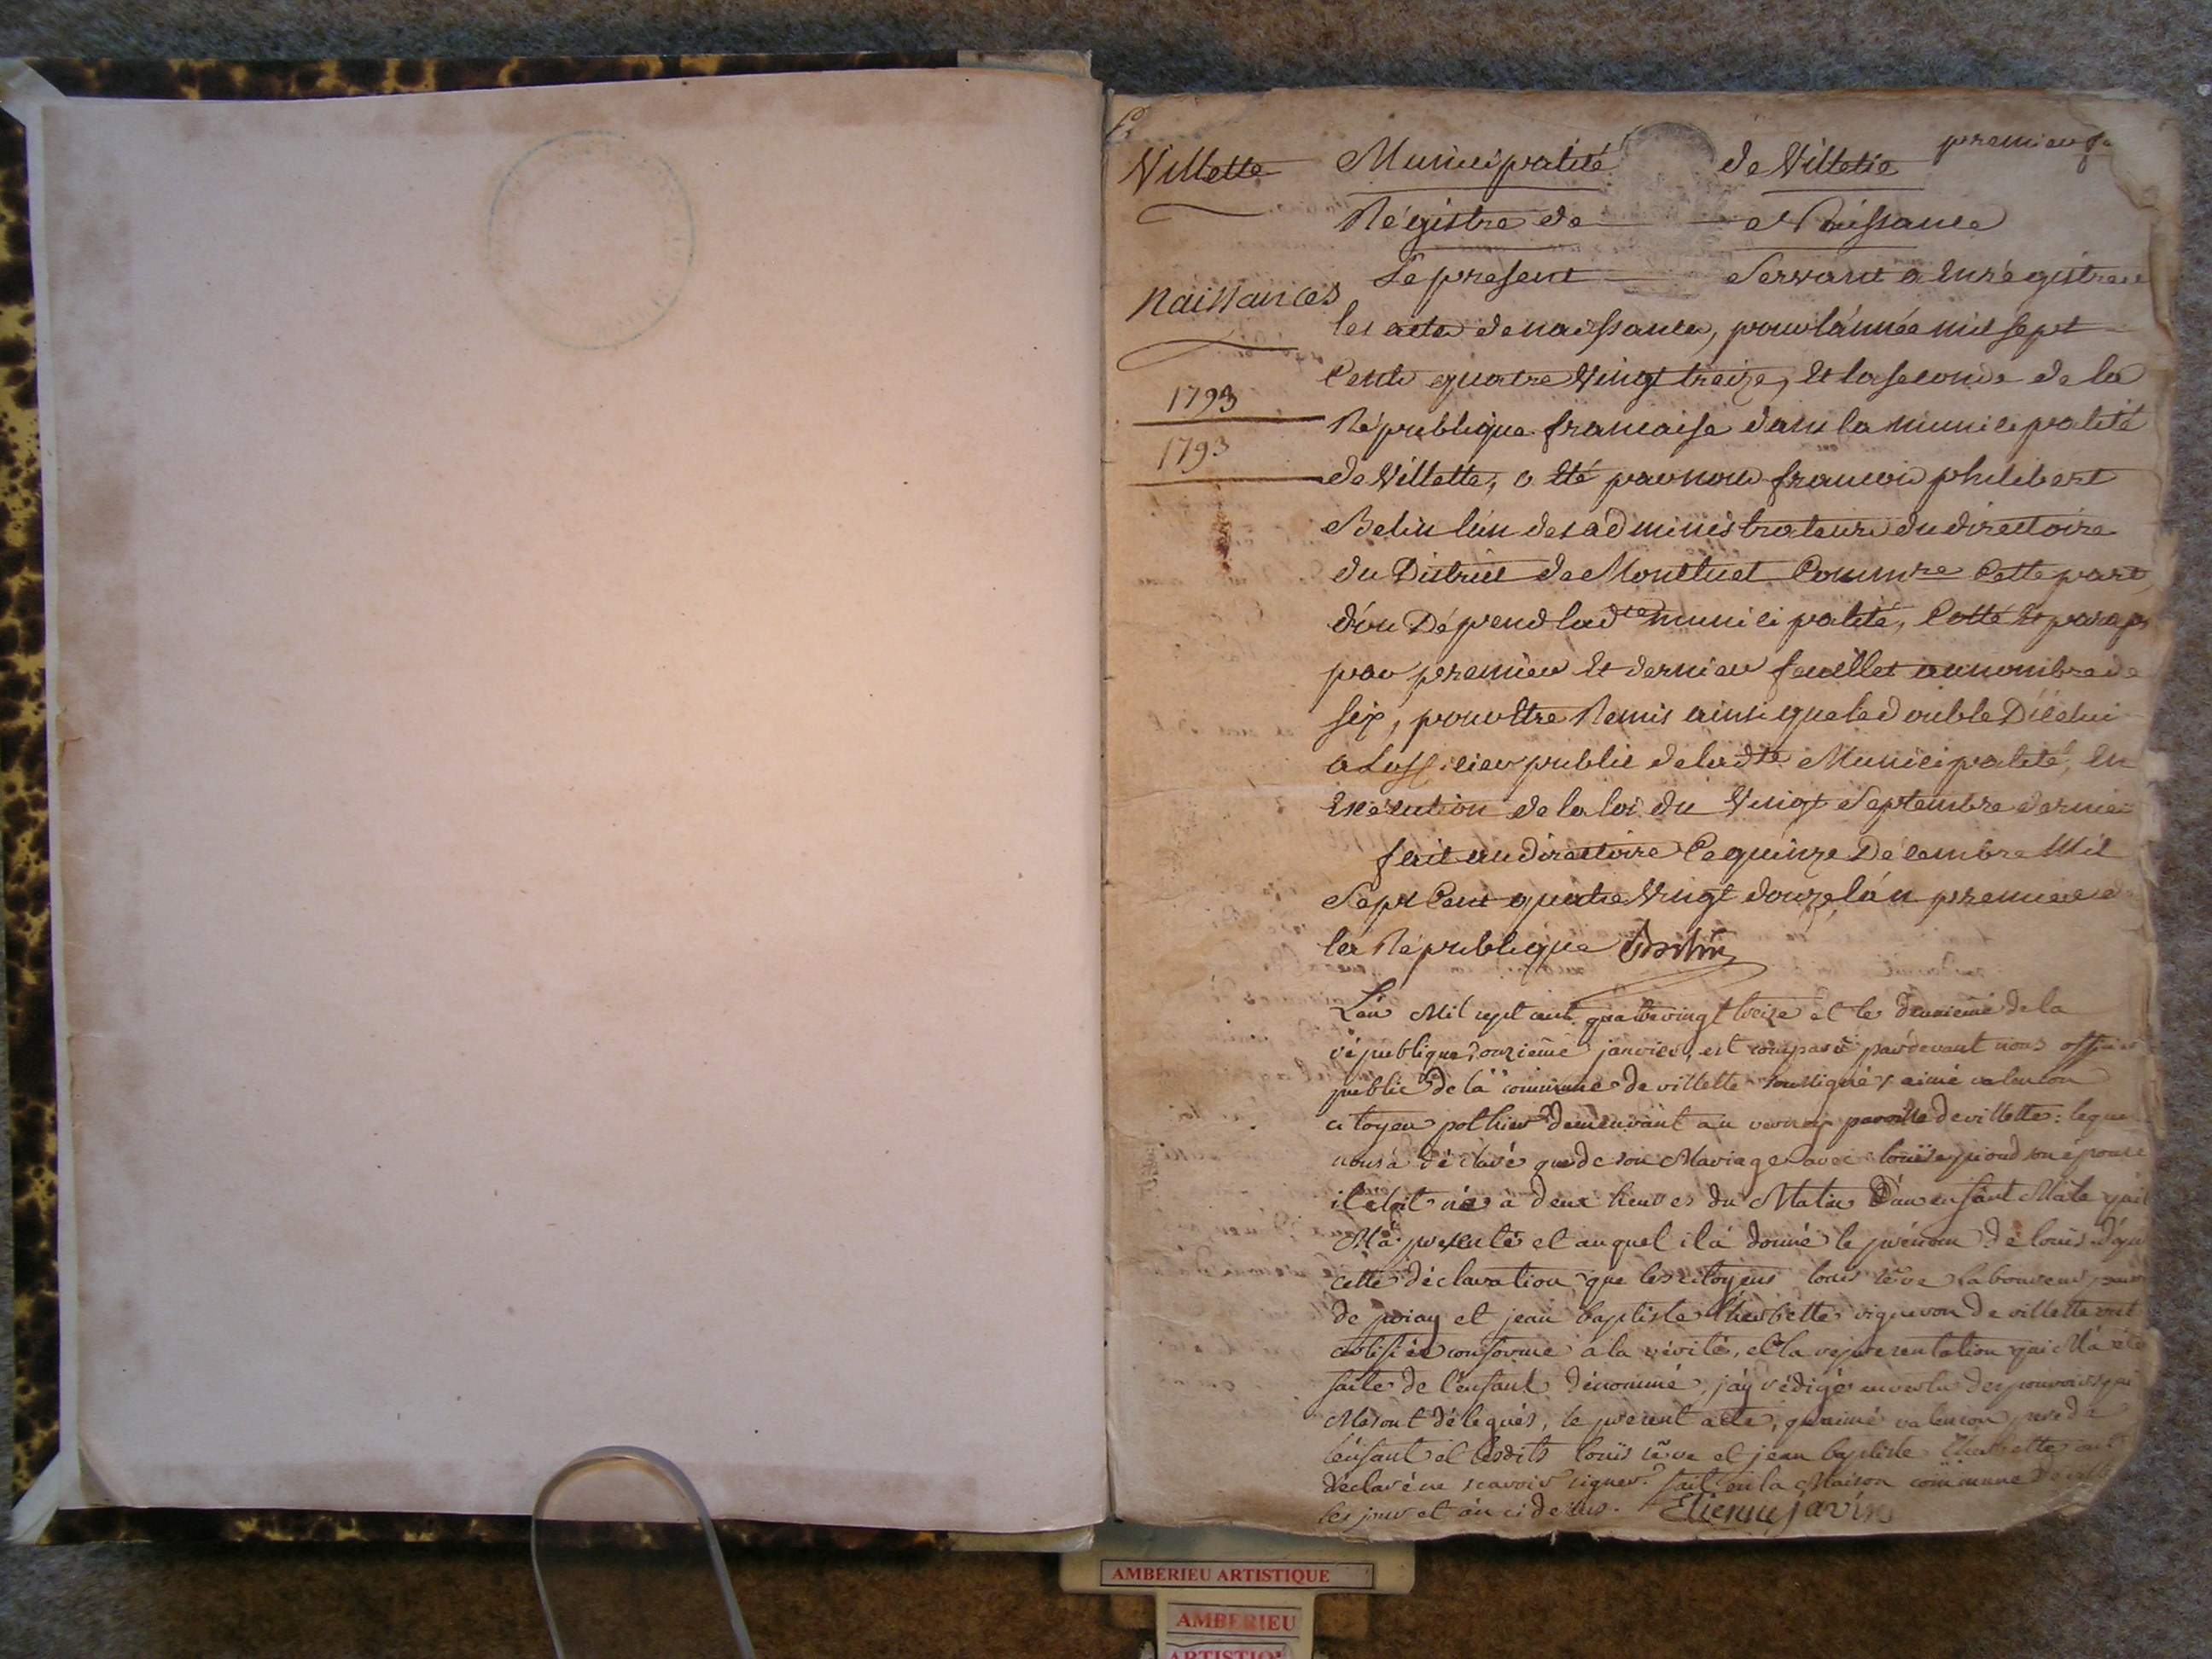 premier
Villette
Municipalité de Villette
Régistre de Naissance
Naissances
Le present Servant a Enrégistrer
les acte de naissance, pour lánnée mil sept
Cents quatre Vingt treize, Et la seconde de la
République francaise dans la municipalité
1793
1793
de Villette, a Eté par nous francois philibert
Belin lún des administrateurs du directoire
du District de Montluel Commre Cette part,
d'ou Dépend ladte municipalité, Cotté Et paraph
par premier Et dernier feuillet au nombre de
six, pour Etre Remis ainsi que le double Dicelui
a Lofficier public de ladte Municipalité, En
Execution de la loi du Vingt Septembre dernier
fait au directoire Ce quinze Décembre Mil
Sept Cent quatre Vingt douze, lán premier de
la République Belin
L'án Mil sept cent quatrevingt treize et le deuxieme de la
république, onzieme janvier, est comparu pardevant nous officier
public de la commune de villette soussigné, aimé valencon
citoyen demeurant au paroisse de villette: lequel
nous à déclaré que de son Mariage avec louise son épouse
il etoit né à deux heures du Matin d'un enfant Mâle qu'il
M'à presenté et auquel il à donné le prénom de louis. D'après
cette déclaration que les citoyens louis laboureur
de priay et jean baptiste vigneron de villette ont
certifiée conforme à la vérité, et la représentation qui M'à été
faite de l'enfant dénommé, j'ay rédigé en vertu des pouvoirs qui
Me sont délegués, le present acte, qu'aimé valencon pere de
l'enfant et lesdits louis et jean baptiste ont
déclaré ne scavoir signer. fait en la Maison commune de
les jour et án ci dessus. Etienne javin
AMBERIEU ARTISTIQUE
AMBERIEU
ARTISTIQUE